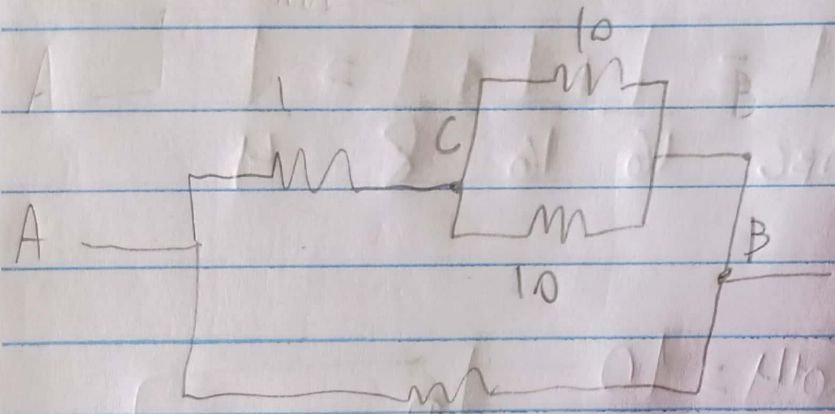 10
1
C
A
B
10